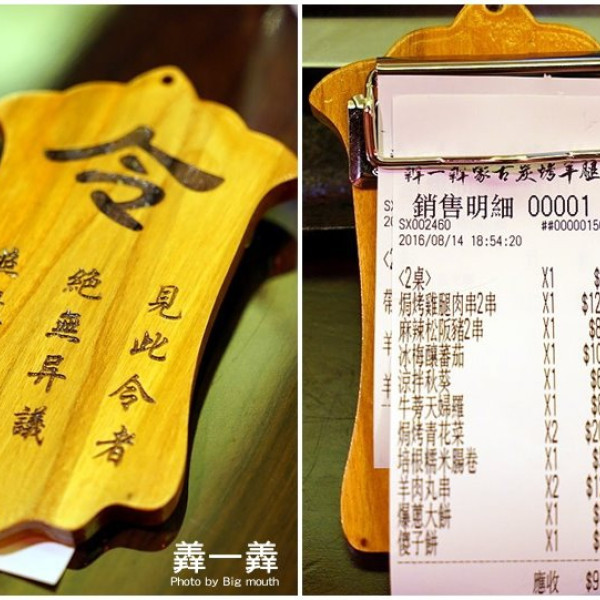 令
見此令者
絕無异議
羴一羴
Photo by Big mouth
羴一羴蒙古炭烤羊腿
銷售明細 00001
SX002460
2016/08/14 18:54:20
<2桌> X1
焗烤雞腿肉串2串 X1
麻辣松阪豬2串 X1
冰梅釀蕃茄 X1
涼拌秋葵 X1
牛蒡天婦羅 X1
焗烤青花菜 X2
培根糯米腸卷 X1
羊肉丸串 X2
爆蔥大餅 X1
傻子餅 X1
應收